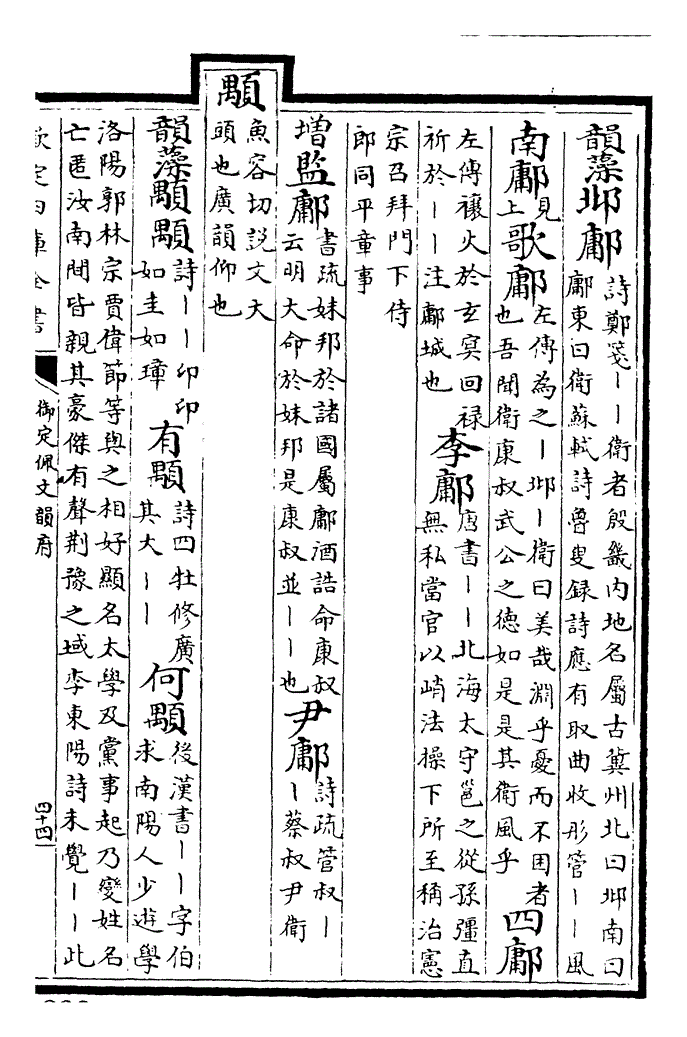 韻藻邶鄘詩鄭箋丨丨衛者殷畿内地名屬古冀州北曰邶南曰
鄘東曰衛蘇軾詩魯叟録詩應有取曲收彤管丨丨風
南鄘見上歌鄘左傳為之丨邶丨衛曰美哉淵乎憂而不困者
也吾聞衛康叔武公之德如是是其衛風乎四鄘
左傳禳火於玄冥回禄
祈於丨丨注鄘城也李鄘唐書丨丨北海太守邕之從孫彊直
無私當官以峭法操下所至稱治憲
宗召拜門下侍
郎同平章事
增監鄘書疏妹邦於諸國屬鄘酒誥命康叔
云明大命於妹邦是康叔並丨丨也尹鄘詩疏管叔丨
丨蔡叔尹衛
顒魚容切説文大
頭也廣韻仰也
韻藻顒顒詩丨丨卬卬
如圭如璋有顒詩四牡修廣
其大丨丨何顒後漢書丨丨字伯
求南陽人少遊學
洛陽郭林宗賈偉節等與之相好顯名太學及黨事起乃變姓名
亡匿汝南間皆親其豪傑有聲荆豫之域李東陽詩未覺丨丨此
欽定四庫全書
御定佩文韻府
四十四